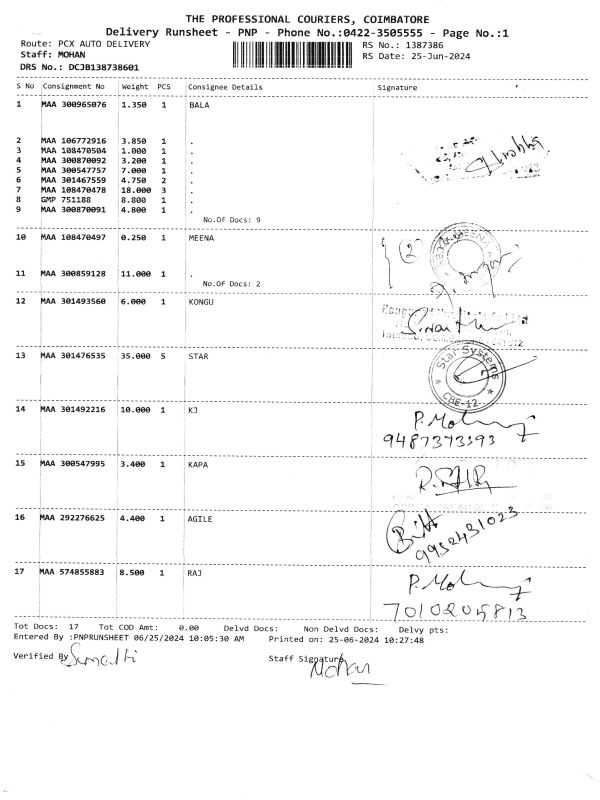 THE PROFESSIONAL COURIERS, COIMBATORE
Delivery Runsheet - PNP - Phone No.:0422-3505555 - Page No.:1
Route: PCX AUTO DELIVERY RS No.: 1387386
Staff: MOHAN RS Date: 25-Jun-2024
DRS No.: DCJB138738601
S No Consignment No Weight PCS Consignee Details Signature
1 MAA 300965076 1.350 1 BALA
2 MAA 106772916 3.850 1 .
3 MAA 108470504 1.000 1 .
4 MAA 300870092 3.200 1 .
5 MAA 300547757 7.000 1 .
6 MAA 301467559 4.750 2 .
7 MAA 108470478 18.000 3 .
8 GMP 751188 8.800 1 .
9 MAA 300870091 4.800 1 .
No.Of Docs: 9
10 MAA 108470497 0.250 1 MEENA
(2)
11 MAA 300859128 11.000 1 .
No.Of Docs: 2
12 MAA 301493560 6.000 1 KONGU
13 MAA 301476535 35.000 5 STAR
Star Systems
CBE-12
14 MAA 301492216 10.000 1 KJ
9487373393
15 MAA 300547995 3.400 1 KAPA
16 MAA 292276625 4.400 1 AGILE
9952431023
17 MAA 574855883 8.500 1 RAJ
7010205813
Tot Docs: 17 Tot COD Amt: 0.00 Delvd Docs: Non Delvd Docs: Delvy pts:
Entered By :PNPRUNSHEET 06/25/2024 10:05:30 AM Printed on: 25-06-2024 10:27:48
Verified By Staff Signature
Mohan